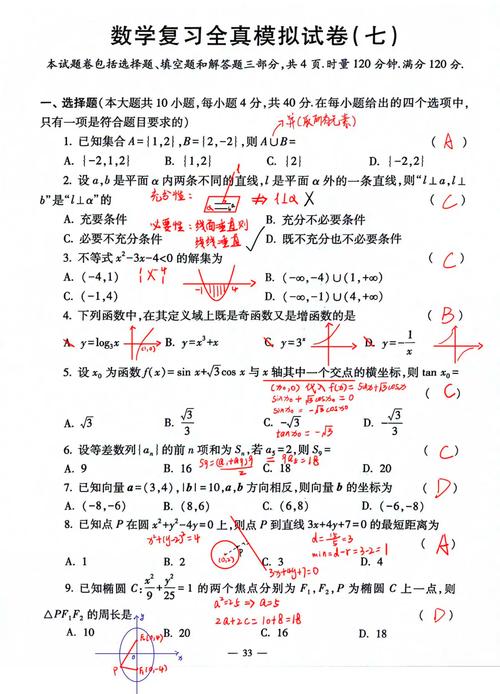 数学复习全真模拟试卷(七)
本试题卷包括选择题、填空题和解答题三部分,共4页.时量120分钟.满分120分.
一、选择题(本大题共10小题,每小题4分,共40分.在每小题给出的四个选项中,
只有一项是符合题目要求的)
并(取所有元素)
1. 已知集合A={1,2},B={2,-2},则A∪B= (A)
A. {-2,1,2} B. {1,2} C. {2} D. {-2,2}
2. 设a,b是平面α内两条不同的直线,l是平面α外的一条直线,则“l⊥a,l⊥
b”是“l⊥α”的 充分性: ⇏ l⊥α X (C)
A. 充要条件 B. 充分不必要条件
必要性: 线面垂直则
C. 必要不充分条件 D. 既不充分也不必要条件
线线垂直
3. 不等式x²-3x-4<0的解集为 (C)
A. (-4,1) B. (-∞,-4)∪(1,+∞)
-1 4
C. (-1,4) D. (-∞,-1)∪(4,+∞)
4. 下列函数中,在其定义域上既是奇函数又是增函数的是 (B)
A. y=log₃x B. y=x³+x C. y=3ˣ D. y=-1/x
(1,0)
5. 设x₀为函数f(x)=sin x+√3cos x与x轴其中一个交点的横坐标,则tan x₀=
(x₀,0) 代入 f(x)=sinx+√3cosx (C)
sinx₀+√3cosx₀=0
sinx₀=-√3cosx₀
A. √3 B. √3/3 C. -√3 D. -√3/3
tanx₀=-√3
6. 设等差数列{aₙ}的前n项和为Sₙ,若a₅=2,则S₉= (C)
S₉=(a₁+a₉)9/2=9a₅=18
A. 9 B. 16 C. 18 D. 20
7. 已知向量a=(3,4),|b|=10,a,b方向相反,则向量b的坐标为 (D)
A. (-8,-6) B. (8,6) C. (6,8) D. (-6,-8)
8. 已知点P在圆x²+y²-4y=0上,则点P到直线3x+4y+7=0的最短距离为
x²+(y-2)²=4 (0,2) d=15/5=3 (A)
min=d-r=3-2=1
A. 1 B. 2 C. 3 D. 4
3x+4y+7=0
9. 已知椭圆C:x²/9+y²/25=1的两个焦点分别为F₁,F₂,P为椭圆C上一点,则
a²=25⇒a=5
△PF₁F₂的周长是 2a+2c=10+8=18 (D)
A. 10 B. 20 C. 16 D. 18
F₁(0,4)
P
F₂(0,-4)
— 33 —